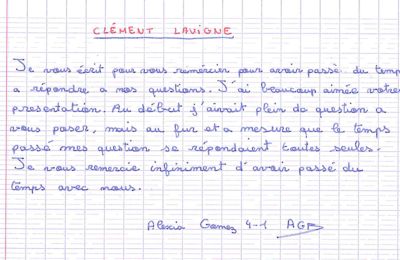 CLÉMENT LAVIGNE
Je vous écrit pour vous remércier pour avoir passé du temp
a répondre a nos questions. J'ai beaucoup aimée votre
presentation. Au début j'airait plein de question a
vous poser, mais au fur et a mesure que le temps
passé mes question se répondaient toutes seules.
Je vous remercie infiniment d'avoir passé du
temps avec nous.
Alexia Gomez 4-1 AGF